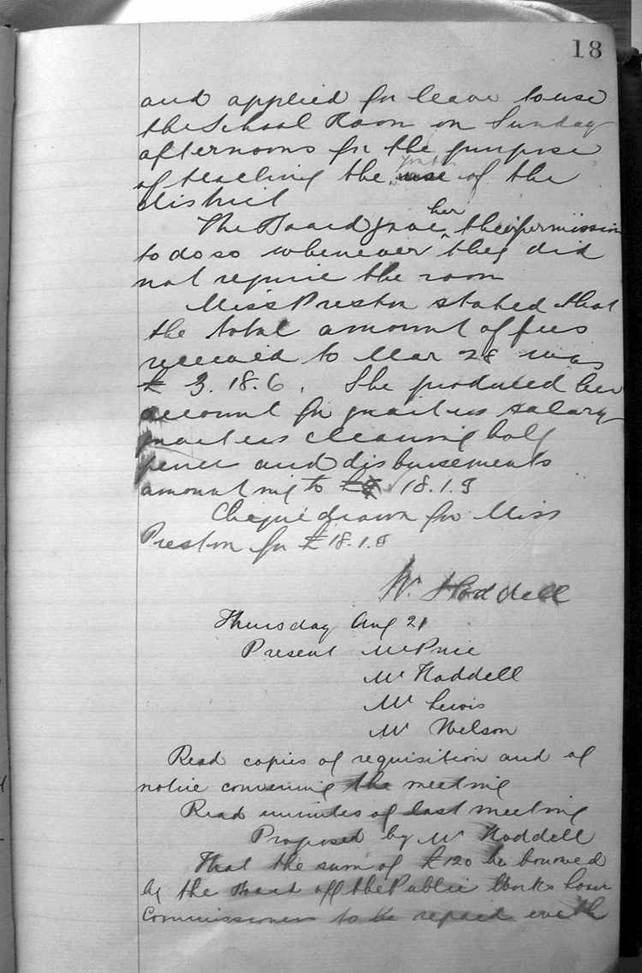 18
and applied for leave to use
the School Room on Sunday
afternoons for the purpose
of teaching the youth of the
district
The Board gave her their permission
to do so whenever they did
not require the room
Miss Preston stated that
the total amount of fees
received to Mar 28 was
£ 3.18.6. She produced her
account for quarters salary
quarters cleaning half
pence and disbursements
amounting to 18.1.9
Cheque drawn for Miss
Preston for £18.1.9
W. Hoddell
Thursday Aug 21
Present Mr Price
Mr Hoddell
Mr Lewis
Mr Nelson
Read copies of requisition and of
notice convening the meeting
Read minutes of last meeting
Proposed by Mr Hoddell
That the sum of £120 be borrowed
by the Board off the Public Works Loan
Commissioners to be repaid with